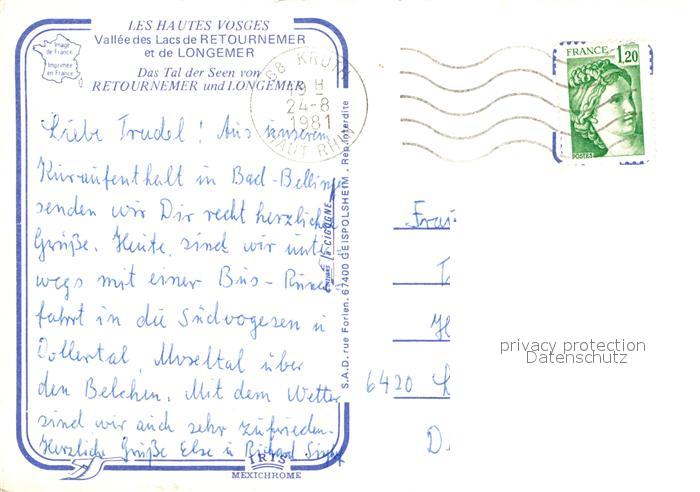 LES HAUTES VOSGES
Vallée des Lacs de RETOURNEMER
et de LONGEMER
Image
de France
Imprimé
en France
Das Tal der Seen von
RETOURNEMER und LONGEMER
68 KRUTH
H
24-8
1981
HAUT RHIN
FRANCE
1,20
POSTES
Liebe Trudel! Aus unserem
Kuraufenthalt in Bad-Bellingen
senden wir Dir recht herzliche
Grüße. Heute sind wir unter-
wegs mit einer Bus-
fahrt in die Südvogesen u
Dollertal, Moseltal über
den Belchen. Mit dem Wetter
sind wir auch sehr zufrieden.
Herzliche Grüße Else u Richard
S.A.D. rue Forlen. 67400 GEISPOLSHEIM. Rep. interdite
CIGOGNE
IRIS
MEXICHROME
Frau
6420 L
D
privacy protection
Datenschutz